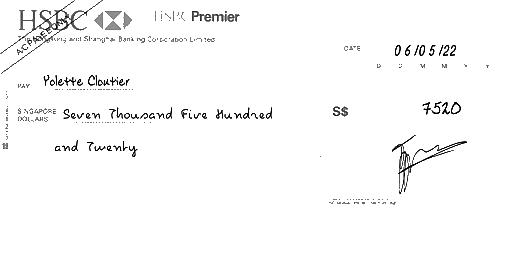 HSBC HSBC Premier
A/C PAYEE ONLY
The Hongkong and Shanghai Banking Corporation Limited
DATE 06/05/22
D D M M Y Y
PAY Polette Cloutier
SINGAPORE DOLLARS Seven Thousand Five Hundred and Twenty
S$ 7520